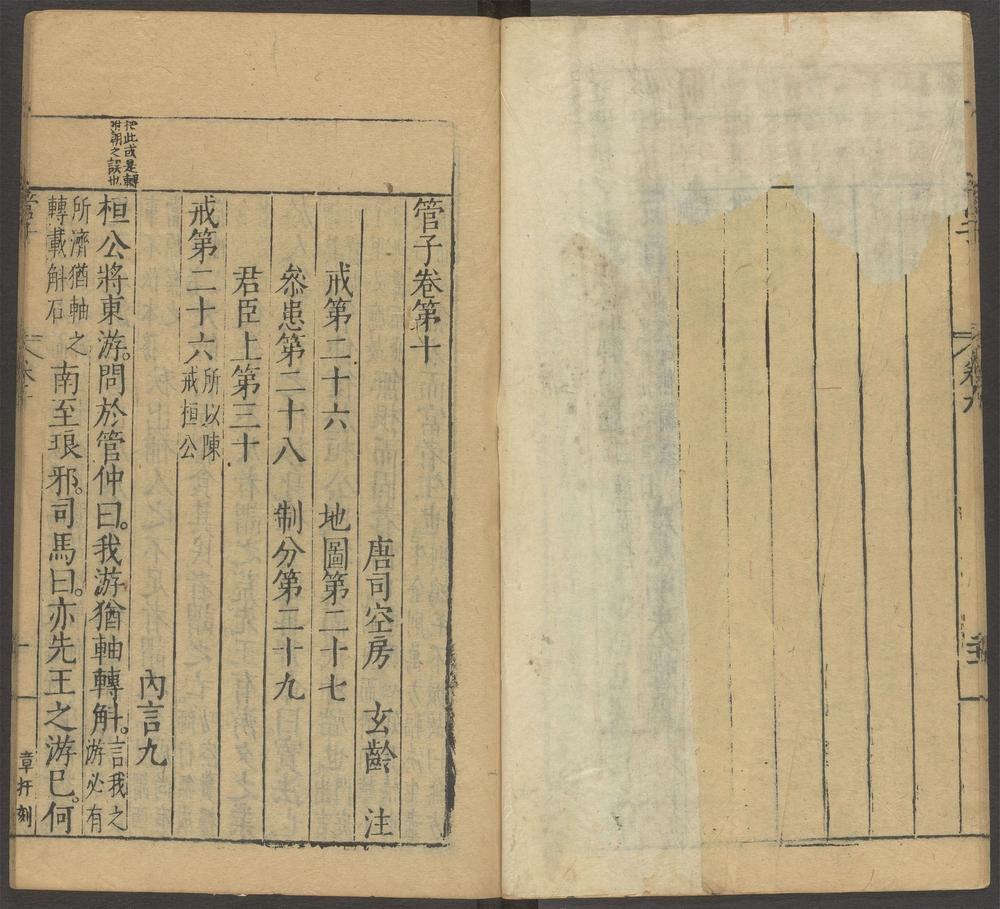 卷九
管子卷第十
唐司空房　玄齡　注
戒第二十六　地圖第二十七
叅患第二十八　制分第二十九
君臣上第三十
戒第二十六
所以陳
戒桓公
內言九
桓公將東游。問於管仲曰。我游猶軸轉斛。
言我之
游必有
所濟猶軸之
轉載斛石
南至琅邪。司馬曰。亦先王之游已。何
此或是轉
附朝之誤也
章扞刻